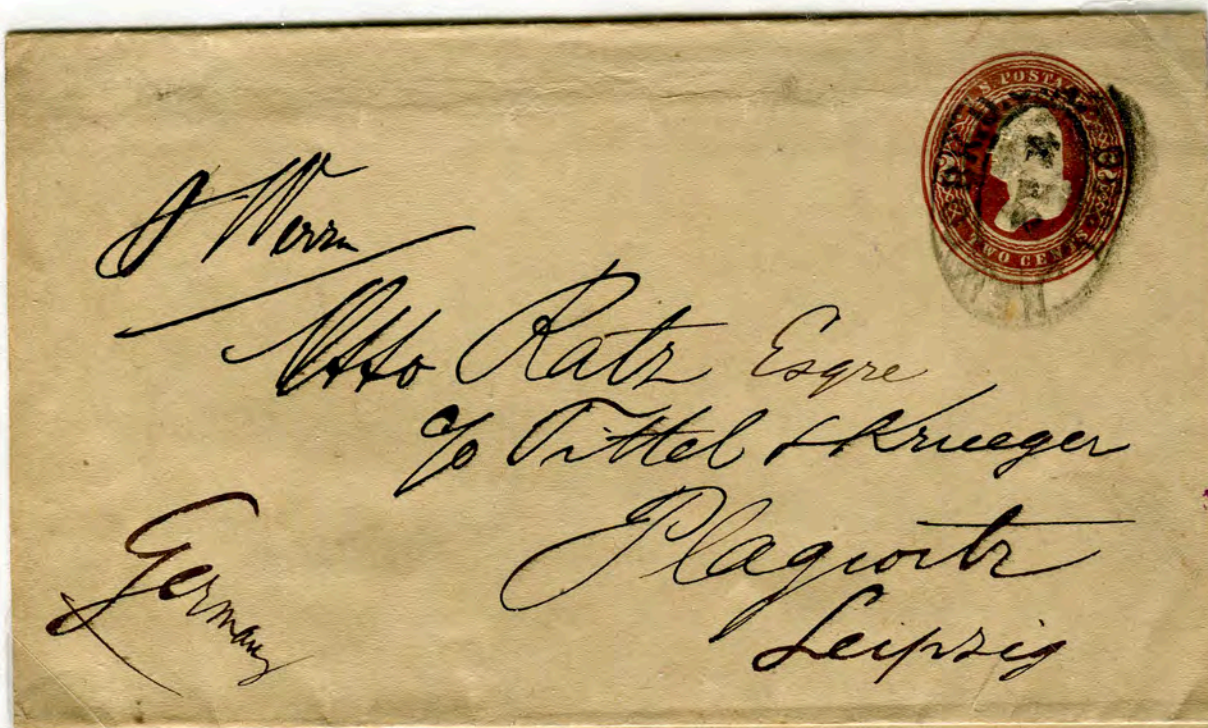 U.S. POSTAGE
TWO CENTS
Otto Ratz Esqre
c/o Tittel & Krueger
Plagwitz
Leipzig
Germany